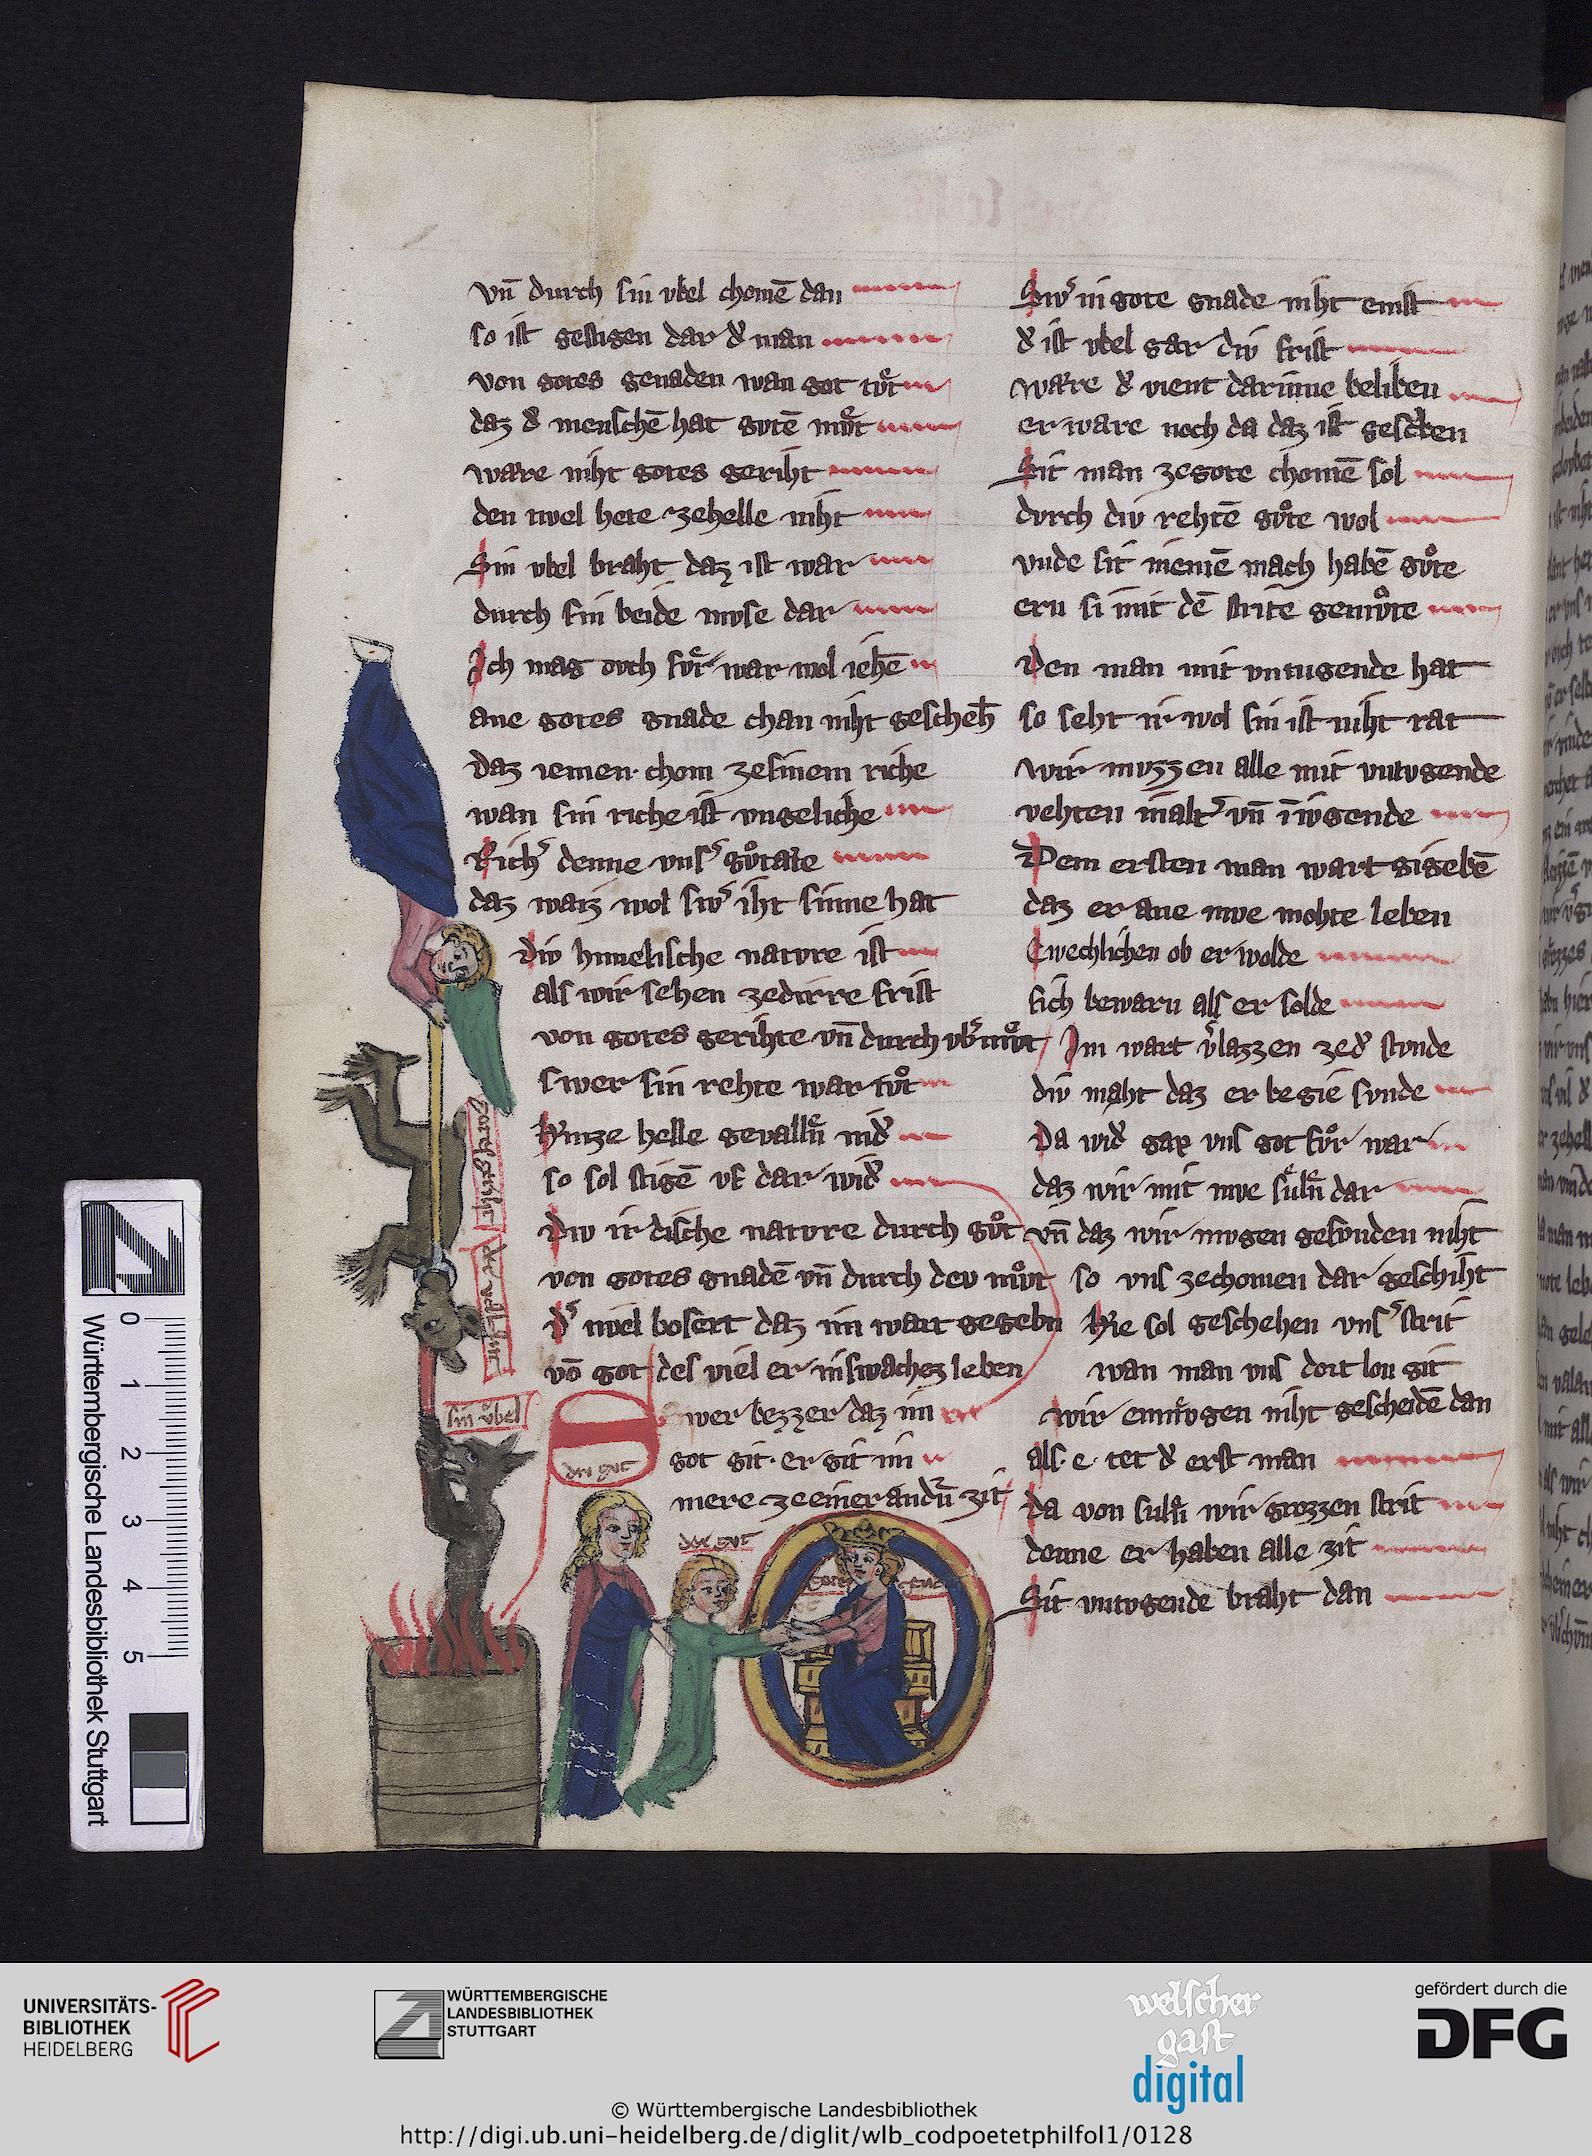 vn̄ durch sin vbel chomē dan
so ist gestigen dar d͛ man
von gotes genaden wan got tvͦt
daz d͛ menschē hat gvtē mvͦt
ware niht gotes geriht
den tivel hete zehelle niht
Sin vbel braht daz ist war
durch sin beide mvse dar
Ich mag ovch fvͤr war wol iehē
ane gotes gnade chan niht gescheh̄
daz iemen chom zesinem riche
wan sin riche ist vngeliche
Rich͛ denne vns͛ gvͦtate
daz waiz wol sw͛ iht sinne hat
div himelische natvre ist
als wir sehen zedirre frist
von gotes gerihte vn̄ durch vb͛mvͦt
swer sin rehte war tvͦt
Hinze helle gevallēn nid͛
so sol stigē vf dar wid͛
Div irdische natvre durch gvͦt
von gotes gnadē vn̄ durch dev mvͦt
d͛ tivel bosert daz im wart gegebn
vō got des viel er in swachez leben
Swer bezzer daz im
got git er git im
mere ze einer andr̄n zit
Gotes geriht
der valsch
sin vbel
div gvt
gotes gnad
Sw͛ in gote gnade niht enist
d͛ ist vbel gar div frist
ware d͛ vient darinne beliben
er ware noch da daz ist geschen
Sit man zegote chomē sol
dvrch div rehtē gvͦte wol
vnde sit niemē mach habē gvͦte
ern si mit dē strite gemvͦte
Den man mit vntugende hat
so seht ir wol sin ist niht rat
wir mvzzen alle mit vntvgende
vehten in alt͛ vn̄ in ivgende
Dem ersten man wart gigebē
daz er ane mve mohte leben
Ewechlichen ob er wolde
sich bewarn als er solde
Im wart v͛lazzen zed͛ stvnde
div maht daz er begie svnde
Da wid͛ gap vns got fvͦr war
daz wir mit mve svͤln dar
vn̄ daz wir mvgen gesvnden niht
so vns zechomen dar geschiht
Hie sol geschehen vns͛ strit
wan man vns dort lon git
wir enmvgen niht gescheidē dan
als e tet d͛ erst man
da von suln wir grozzen strit
denne er haben alle zit
Sit vntvgende braht dan
Württembergische Landesbibliothek Stuttgart
0 1 2 3 4 5
UNIVERSITÄTS-
BIBLIOTHEK
HEIDELBERG
WÜRTTEMBERGISCHE
LANDESBIBLIOTHEK
STUTTGART
welscher
gast
digital
gefördert durch die
DFG
© Württembergische Landesbibliothek
http://digi.ub.uni-heidelberg.de/diglit/wlb_codpoetetphilfol1/0128